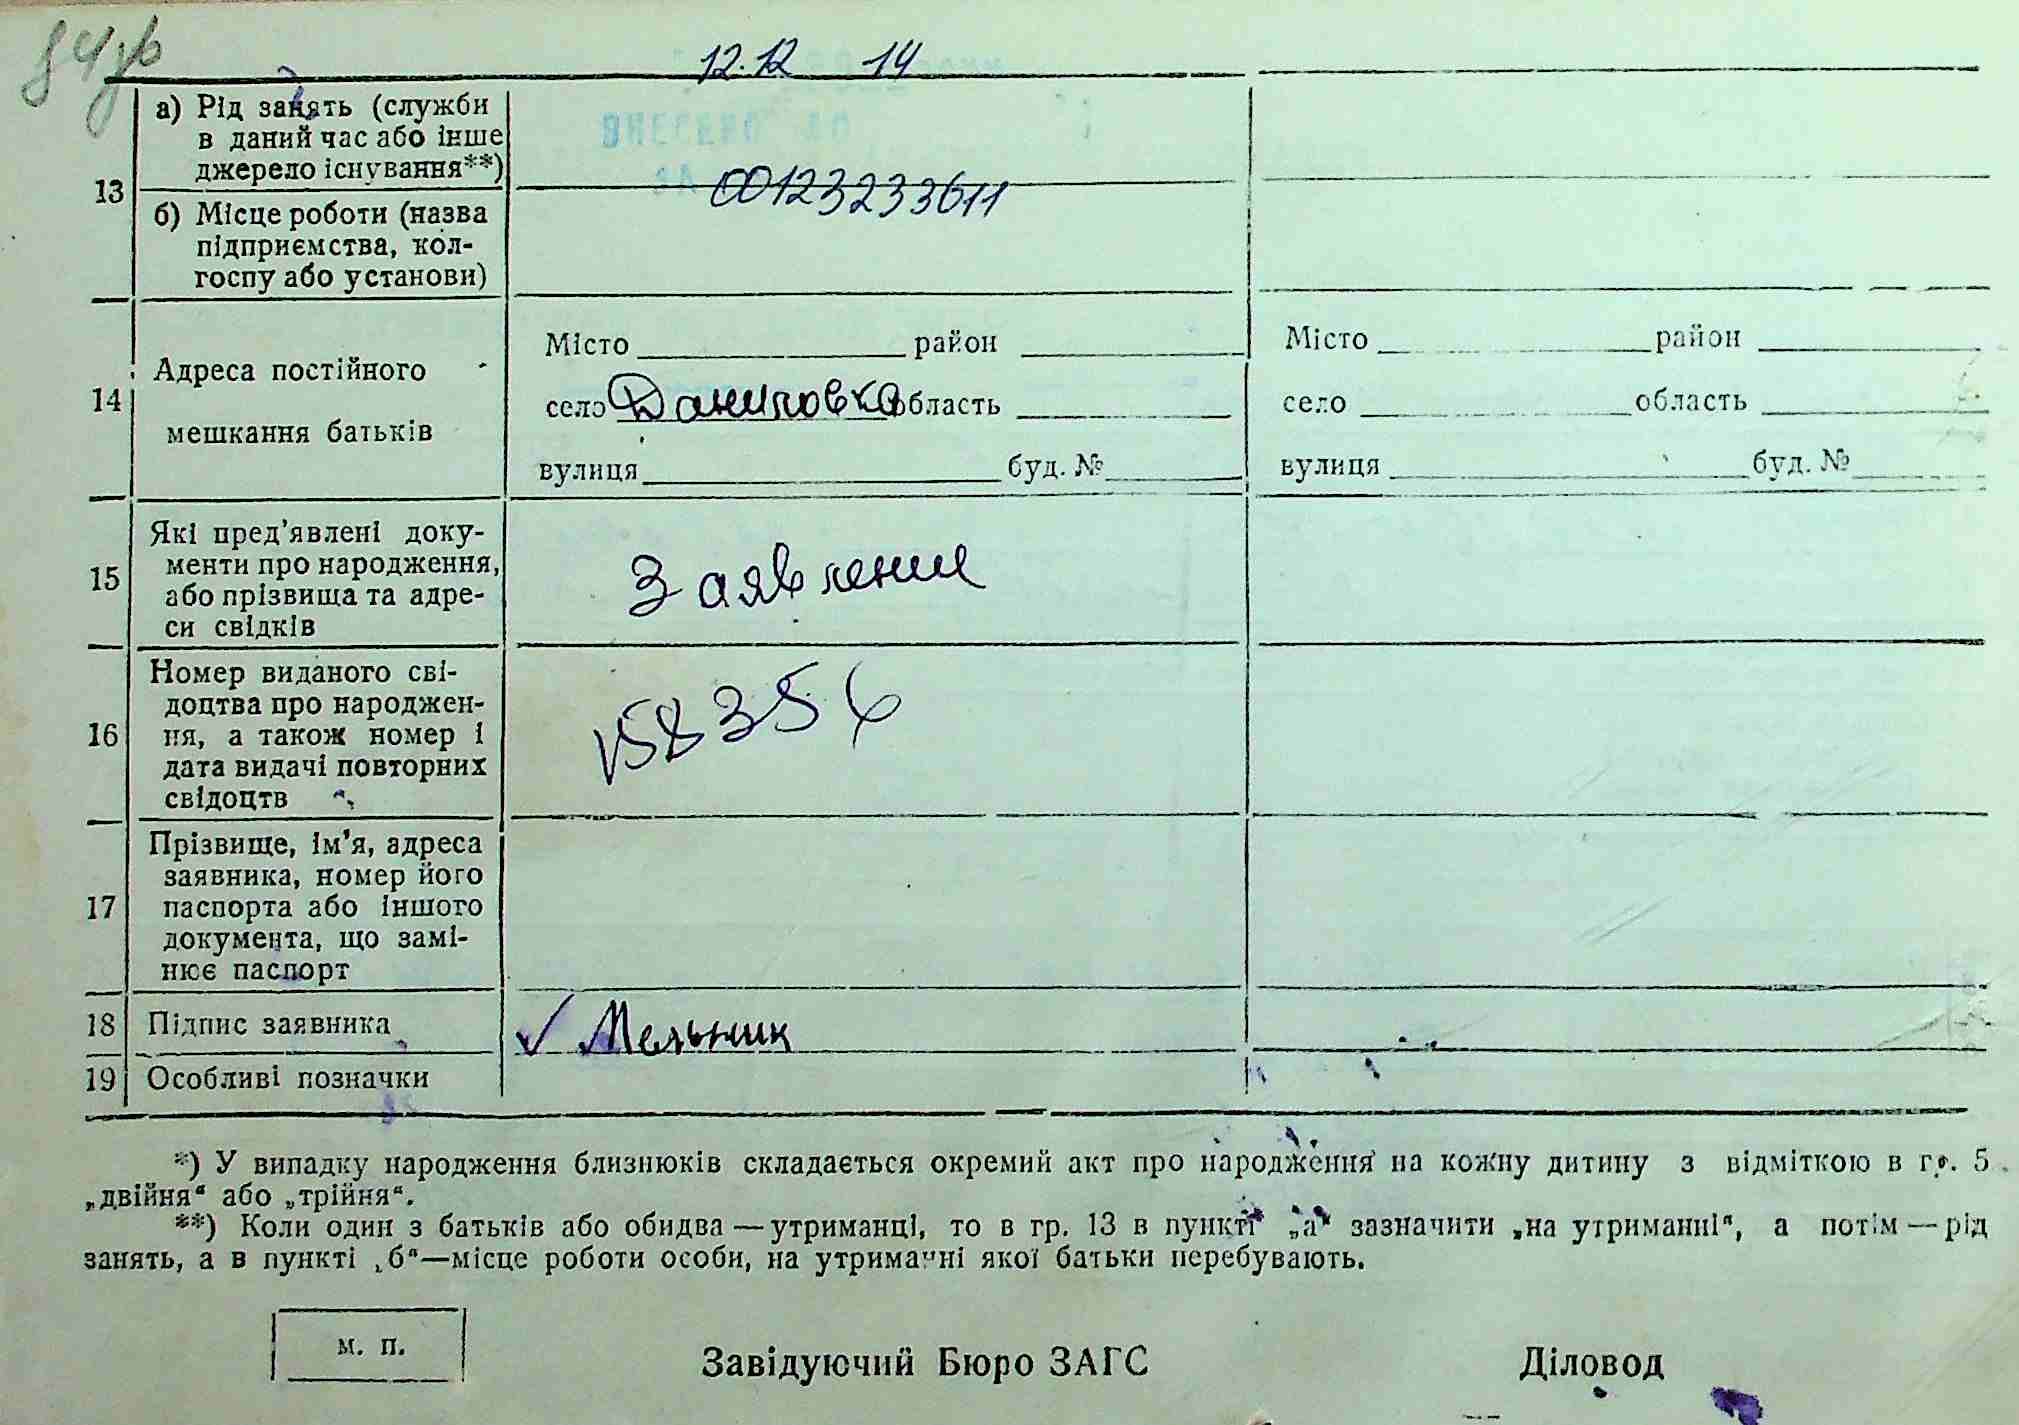 12.12 14
13
а) Рід занять (служби
в даний час або інше
джерело існування**)
00123233611
б) Місце роботи (назва
підприємства, кол-
госпу або установи)
14
Адреса постійного
мешкання батьків
Місто район
село Даниловка область
вулиця буд. №
Місто район
село область
вулиця буд. №
15
Які пред'явлені доку-
менти про народження,
або прізвища та адре-
си свідків
Заявление
16
Номер виданого сві-
доцтва про народжен-
ня, а також номер і
дата видачі повторних
свідоцтв
158356
17
Прізвище, ім'я, адреса
заявника, номер його
паспорта або іншого
документа, що замі-
нює паспорт
18 Підпис заявника
Мельник
19 Особливі позначки
*) У випадку народження близнюків складається окремий акт про народження на кожну дитину з відміткою в гр. 5
„двійня“ або „трійня“.
**) Коли один з батьків або обидва — утриманці, то в гр. 13 в пункті „а“ зазначити „на утриманні“, а потім — рід
занять, а в пункті „б“—місце роботи особи, на утриманні якої батьки перебувають.
м. п.
Завідуючий Бюро ЗАГС
Діловод